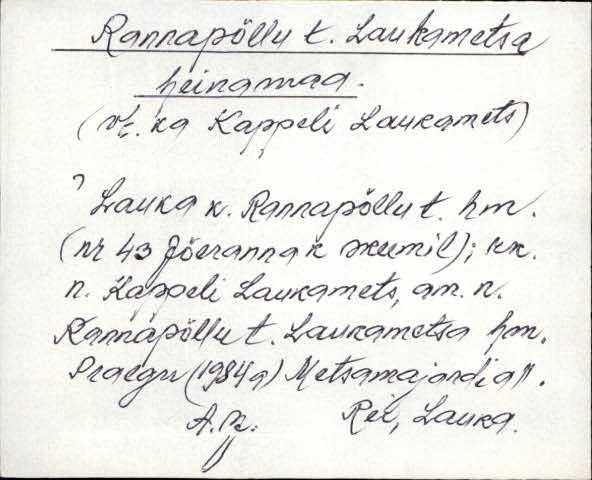 Rannapõllu t. Laukametsa
heinamaa.
(vt. ka Kappeli Laukamets)
Lauka k. Rannapõllu t. hm.
(nr 43 Jõeranna k skeemil); kk.
n. Kappeli Laukamets, am. n.
Rannapõllu t. Laukametsa hm.
Praegu (1984 a) Metsamajandi all.
Rei, Lauka.